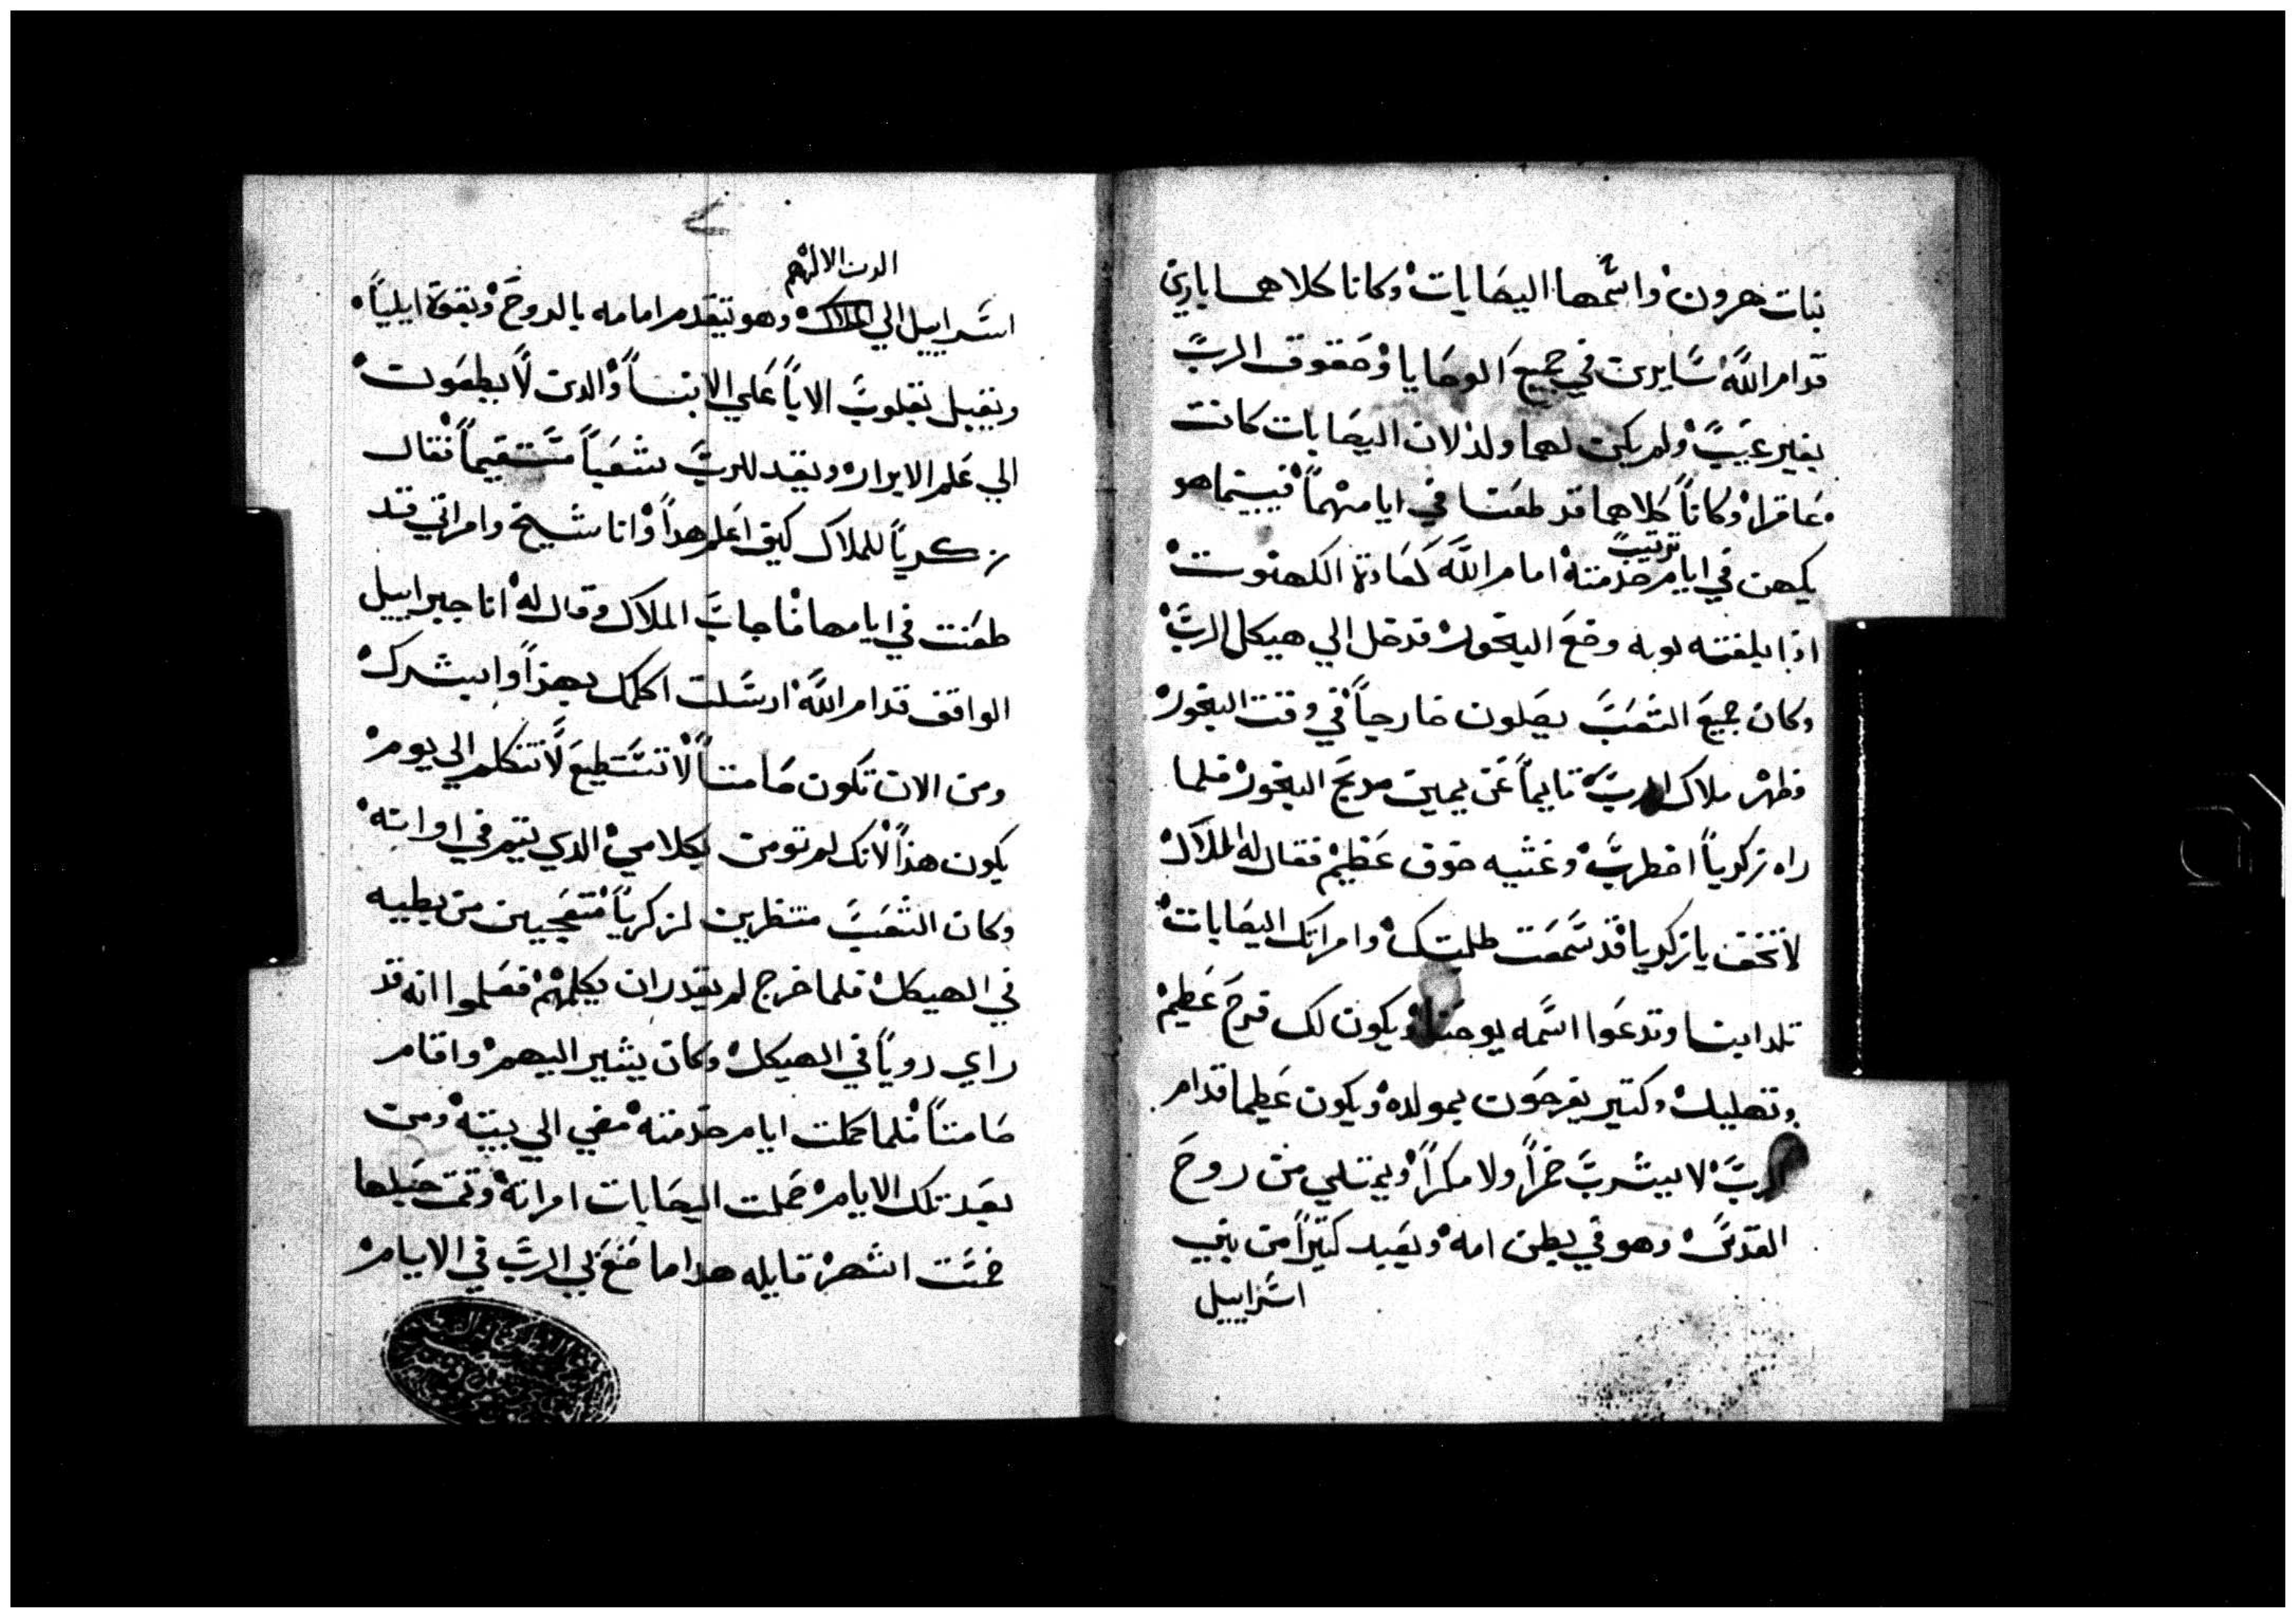 بنات هرون واسمها اليصابات وكانا كلاهما بارين
قدام الله سايرين في جميع الوصايا وحقوق الرب
بغير عيب ولم يكن لهما ولد لان اليصابات كانت
عاقرا وكانا كلاهما قد طعنا في ايامهما فبينما هو
ترتيب
يكهن في ايام خدمته امام الله كعادة الكهنوت
اذا بلغته نوبه وضع البخور فدخل الي هيكل الرب
وكان جميع الشعب يصلون خارجاً في وقت البخور
فظهر ملاك الرب قايماً عن يمين مدبح البخور فلما
راه زكرياً اضطرب وغشيه خوف عظيم فقال له الملاك
لا تخف يا زكريا قد سمعت طلبتك وامراتك اليصابات
تلد ابنا وتدعوا اسمه يوحنا ويكون لك فرح عظيم
وتهليل وكتير يفرحون بمولده ويكون عظيما قدام
الرب لا يشرب خمراً ولا مكراً ويمتلي من روح
القدس وهو في بطن امه ويعيد كتيراً من بني
اسراييل
الرب الاههم
اسراييل الي وهو يتقدم امامه بالروح وبقوة ايلياً
ويقبل بقلوب الاباً علي الابنا والدين لا يطيعون
الي علم الابرار ويعد للرب شعباً مستقيماً فقال
زكرياً للملاك كيف اعلم هداً وانا شيخ وامراتي قد
طعنت في ايامها فاجاب الملاك وقال له انا جبراييل
الواقف قدام الله ارسلت اكلمك بهذاً وابشرك
ومن الان تكون صامتاً لا تستطيع لا تتكلم الي يوم
يكون هذاً لانك لم تومن بكلامي الدي يتم في اوانه
وكان الشعب منتظرين لزكرياً متعجبين من بطيه
في الهيكل فلما خرج لم يقدر ان يكلمهم فعلموا انه قد
راي روياً في الهيكل وكان يشير اليهم واقام
صامتاً فلما كملت ايام خدمته مضي الي بيته ومن
بعد تلك الايام حملت اليصابات امراته وكتمت حبلها
خمست اشهر قايله هدا ما صنع بي الرب في الايام